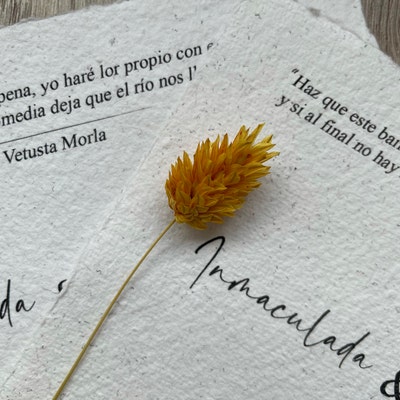 pena, yo haré lor propio con e
media deja que el río nos l'
Vetusta Morla
da
"Haz que este ban
y si al final no hay
Inmaculada
&